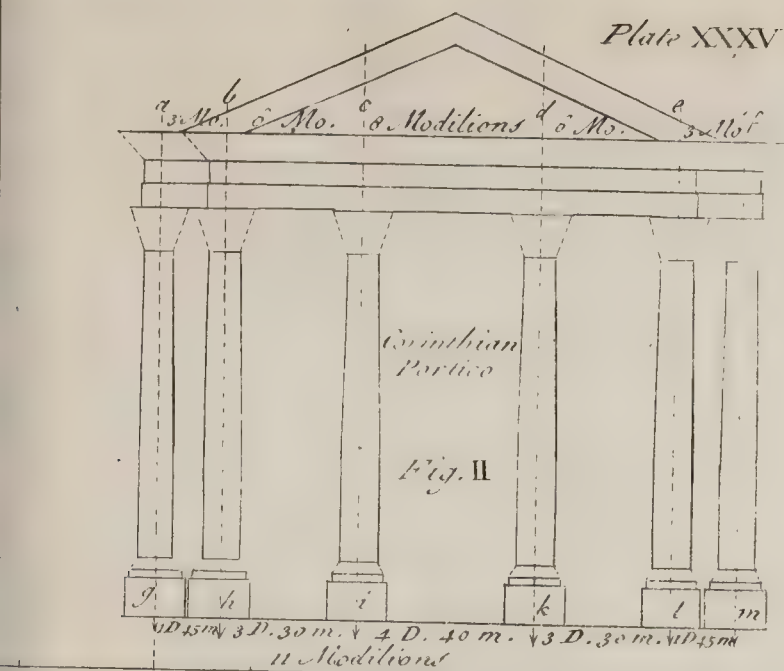 Plate XXXV
a b c d e f
3 Mo. 6 Mo. 8 Modilions 6 Mo. 3 Mo
Corinthian
Portico
Fig. II
g h i k l m
1D 45m 3 D. 30 m. 4 D. 40 m. 3 D. 30 m. 1D 45m
11 Modilions